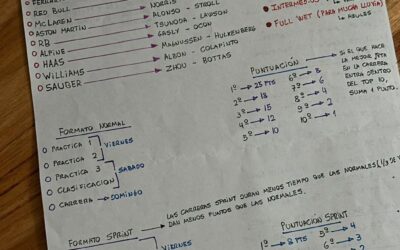 FERRARI
RED BULL
MCLAREN → NORRIS
ASTON MARTIN → ALONSO - STROLL
RB → TSUNODA - LAWSON
ALPINE → GASLY - OCON
HAAS → MAGNUSSEN - HULKENBERG
WILLIAMS → ALBON - COLAPINTO
SAUBER → ZHOU - BOTTAS
INTERMEDIOS
FULL WET (PARA MUCHA LLUVIA)
↳ AZULES
PUNTUACIÓN
1º → 25 PTS 6º → 8
2º → 18 7º → 6
3º → 15 8º → 4
4º → 12 9º → 2
5º → 10 10º → 1
SI EL QUE HACE
LA MEJOR
EN LA CARRERA
ENTRA DENTRO
DEL TOP 10,
SUMA 1 PUNTO.
FORMATO NORMAL
PRACTICA 1
PRACTICA 2
VIERNES
PRACTICA 3
CLASIFICACION
SABADO
CARRERA → DOMINGO
LAS CARRERAS SPRINT DURAN MENOS TIEMPO QUE LAS NORMALES (1/3 DE
DAN MENOS PUNTOS QUE LAS NORMALES.
FORMATO SPRINT
VIERNES
PUNTUACION SPRINT
1º → 8 PTS 5º → 4
2º → 7 6º → 3